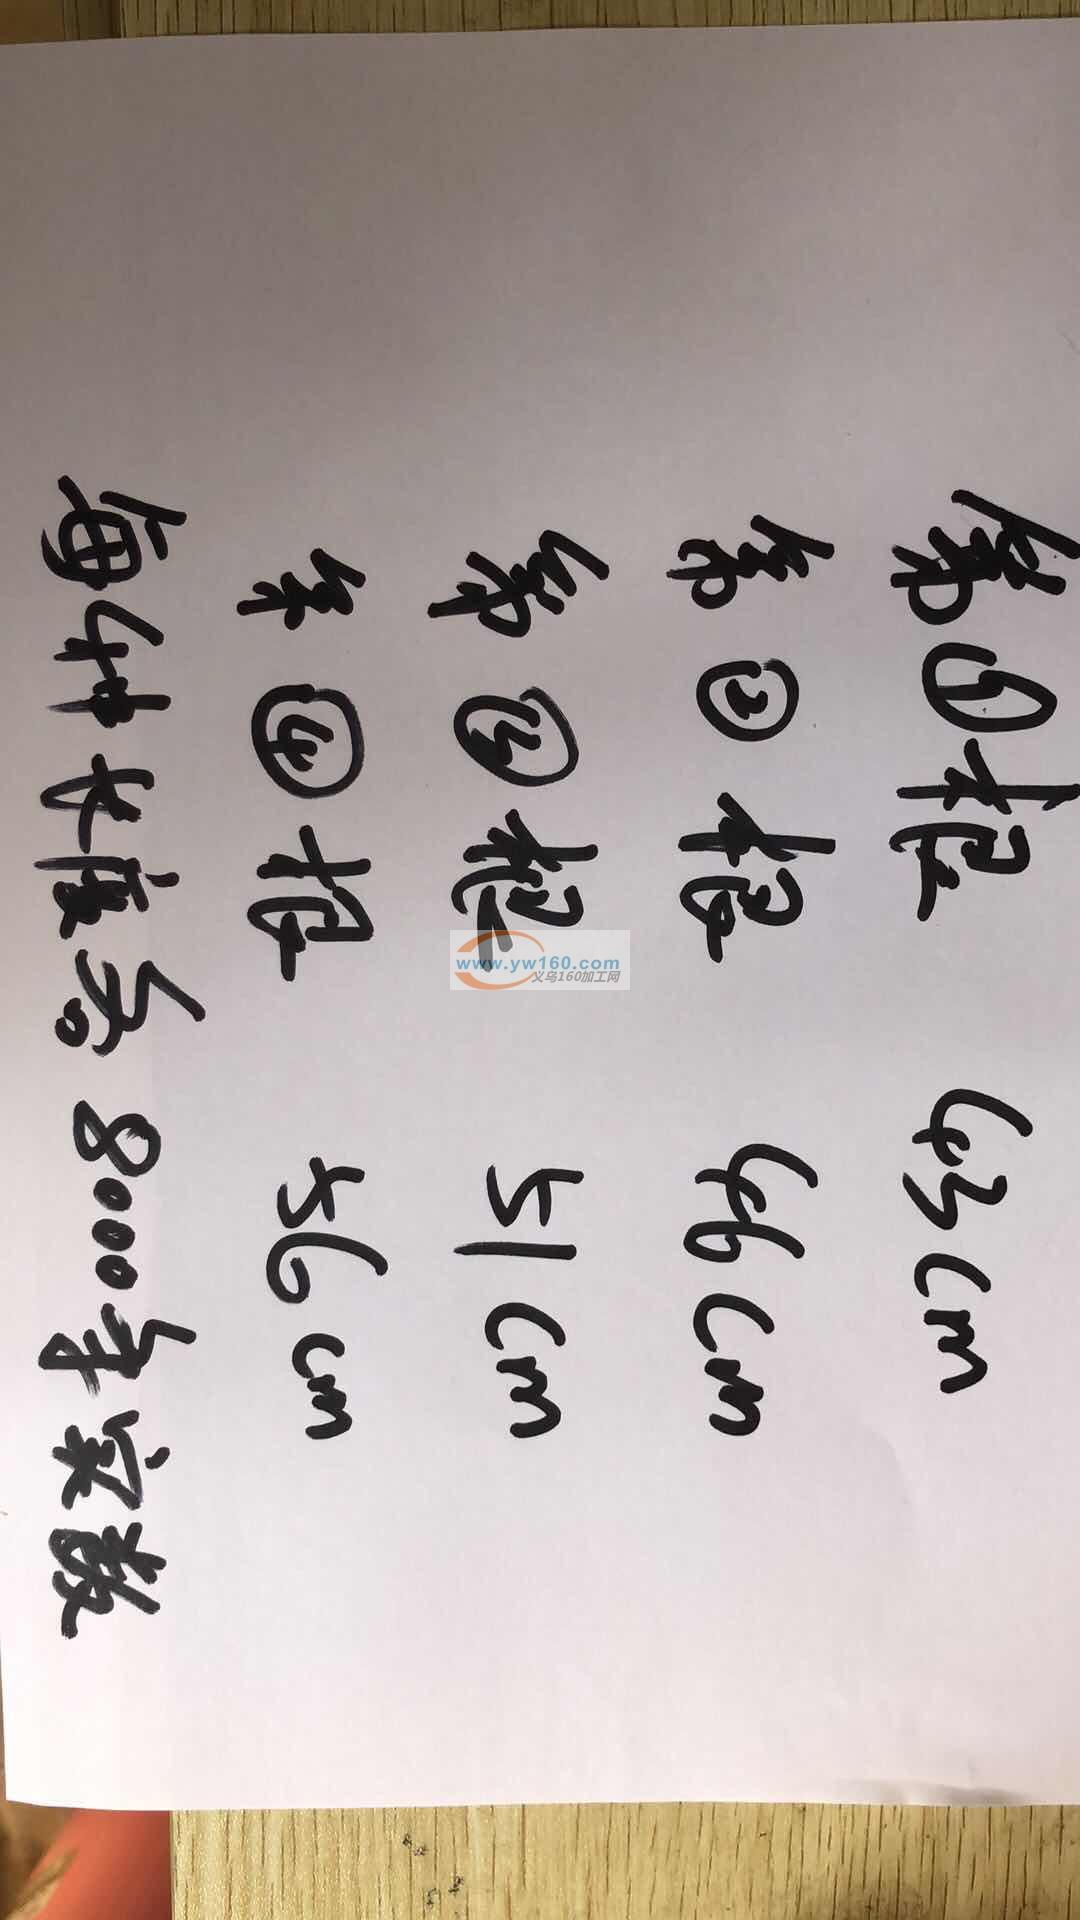 第①根 43cm
第②根 46cm
第③根 51cm
第④根 56cm
每种长度各8000套实数
www.yw160.com
义乌160加工网